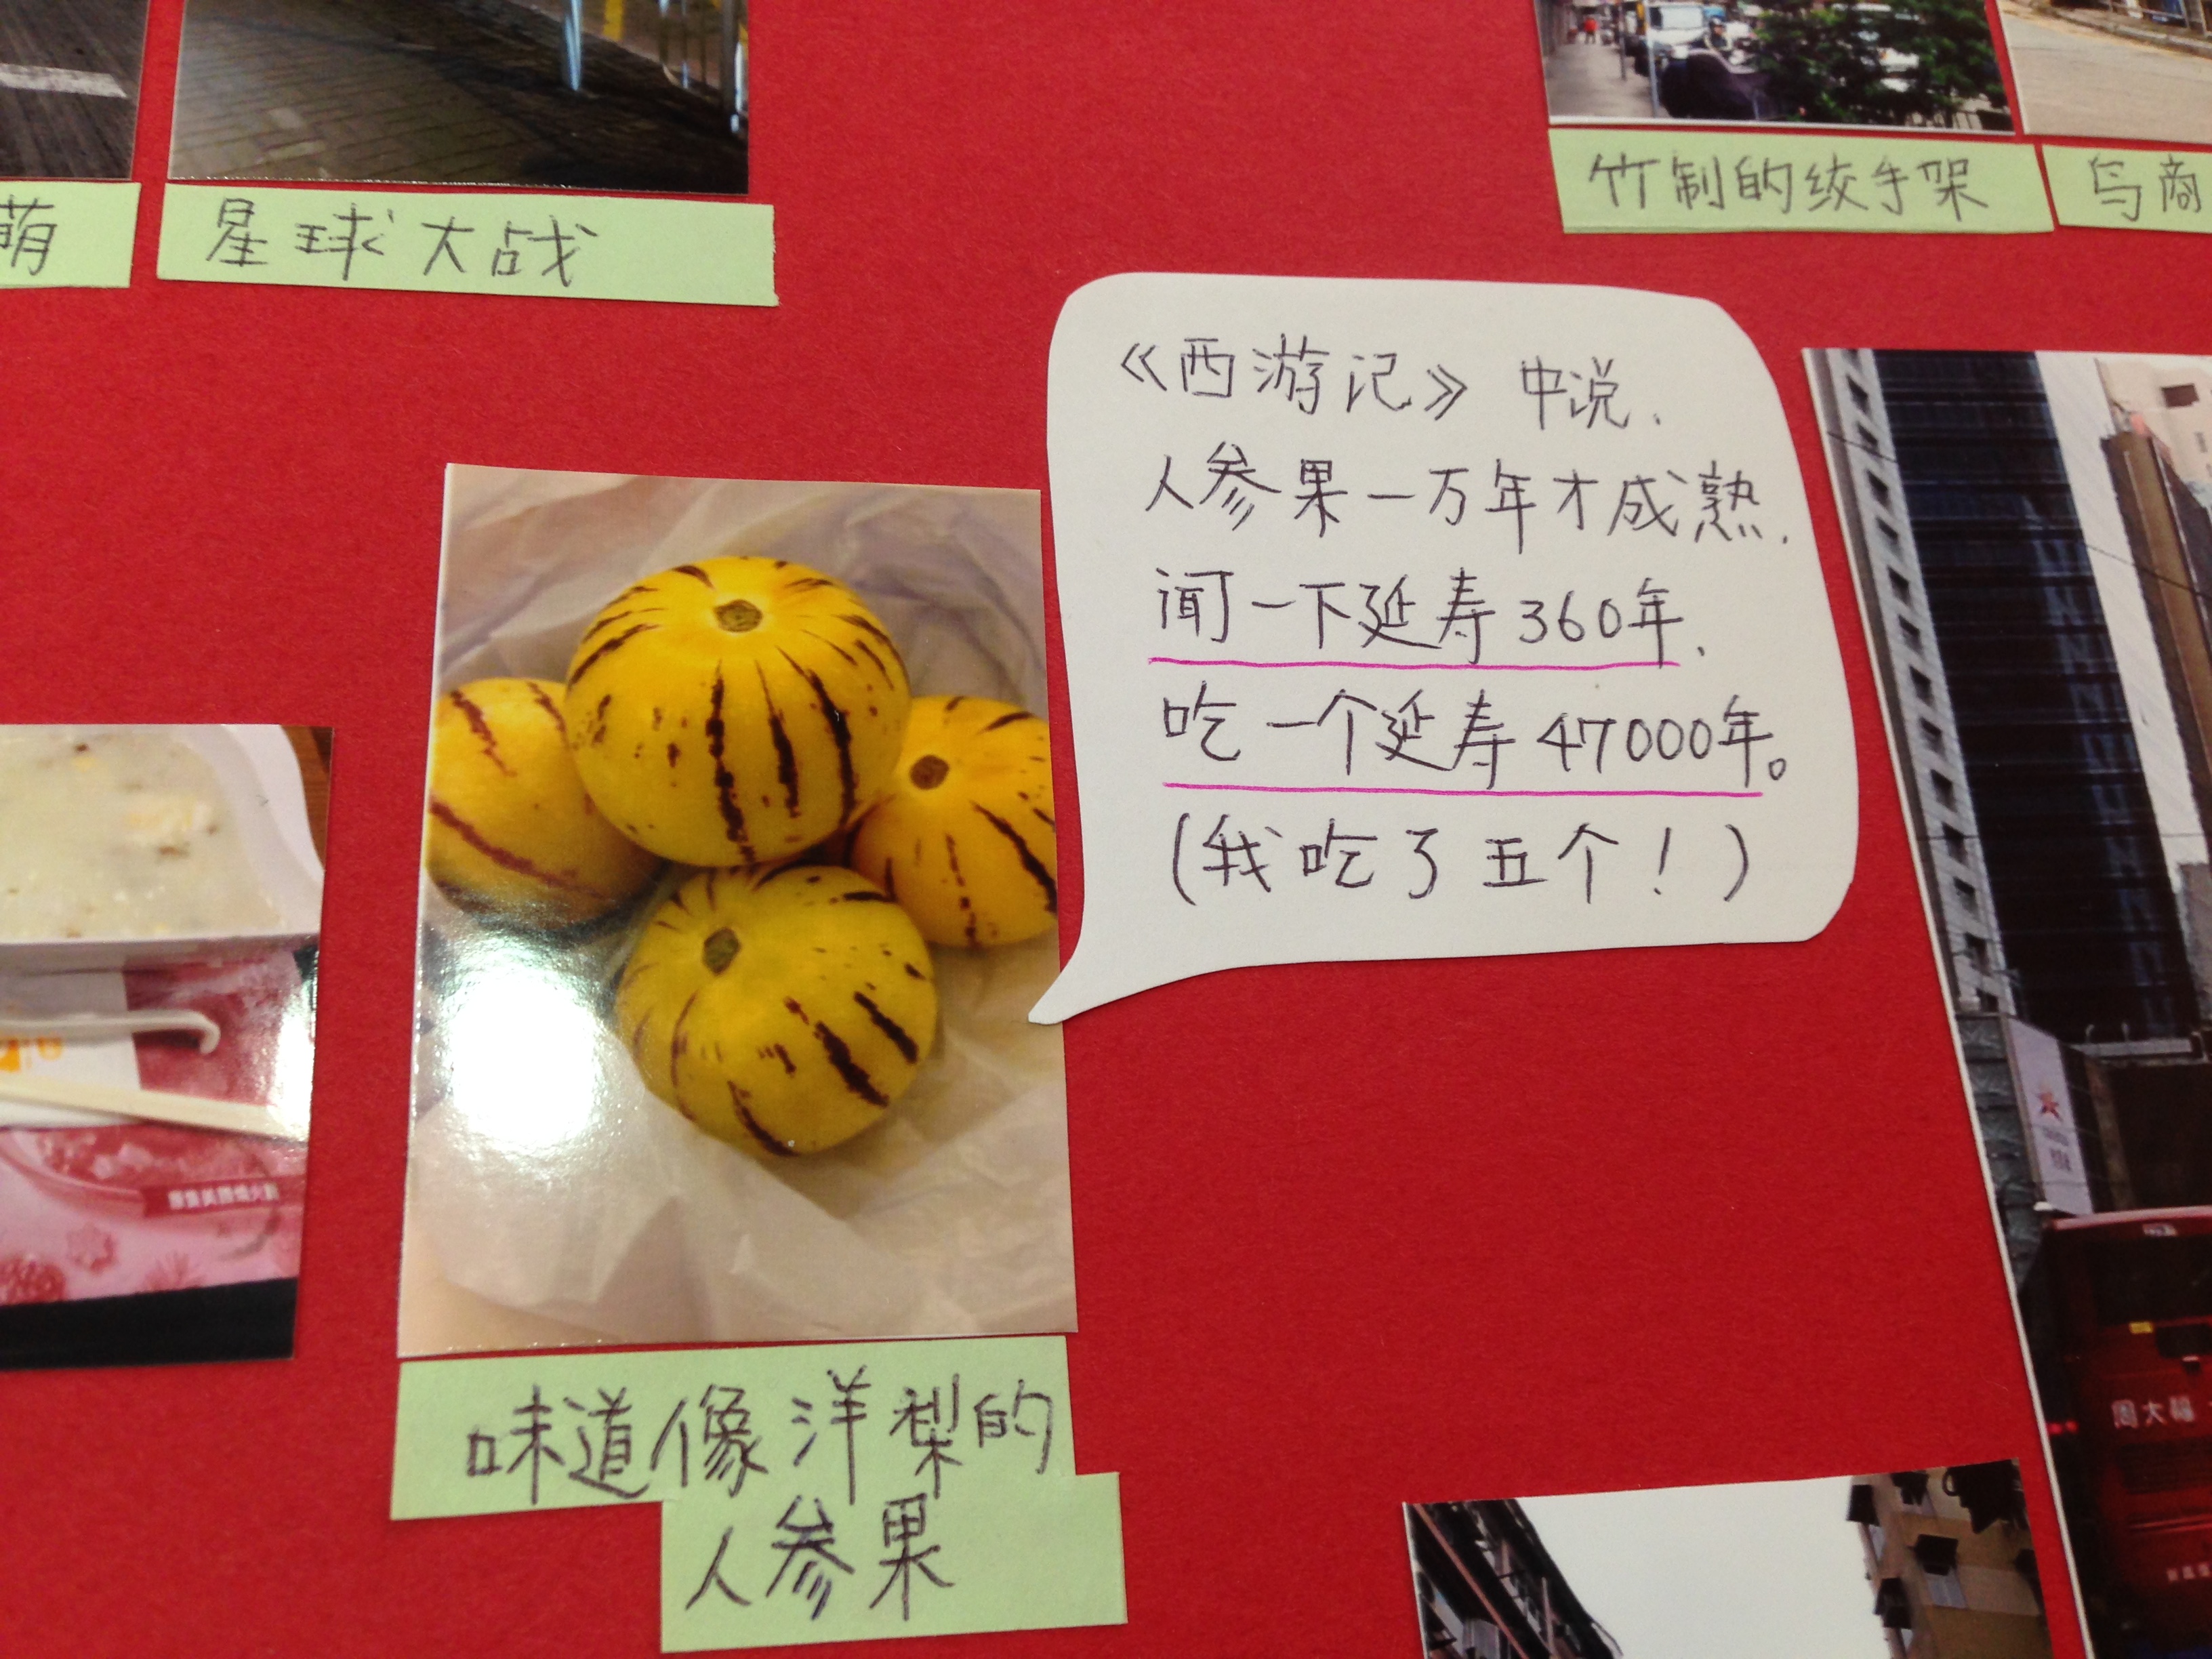 萌
星球大战
竹制的绞手架
鸟商
《西游记》中说.
人参果一万年才成熟.
闻一下延寿360年.
吃一个延寿47000年。
(我吃了五个！)
味道像洋梨的
人参果
周大福